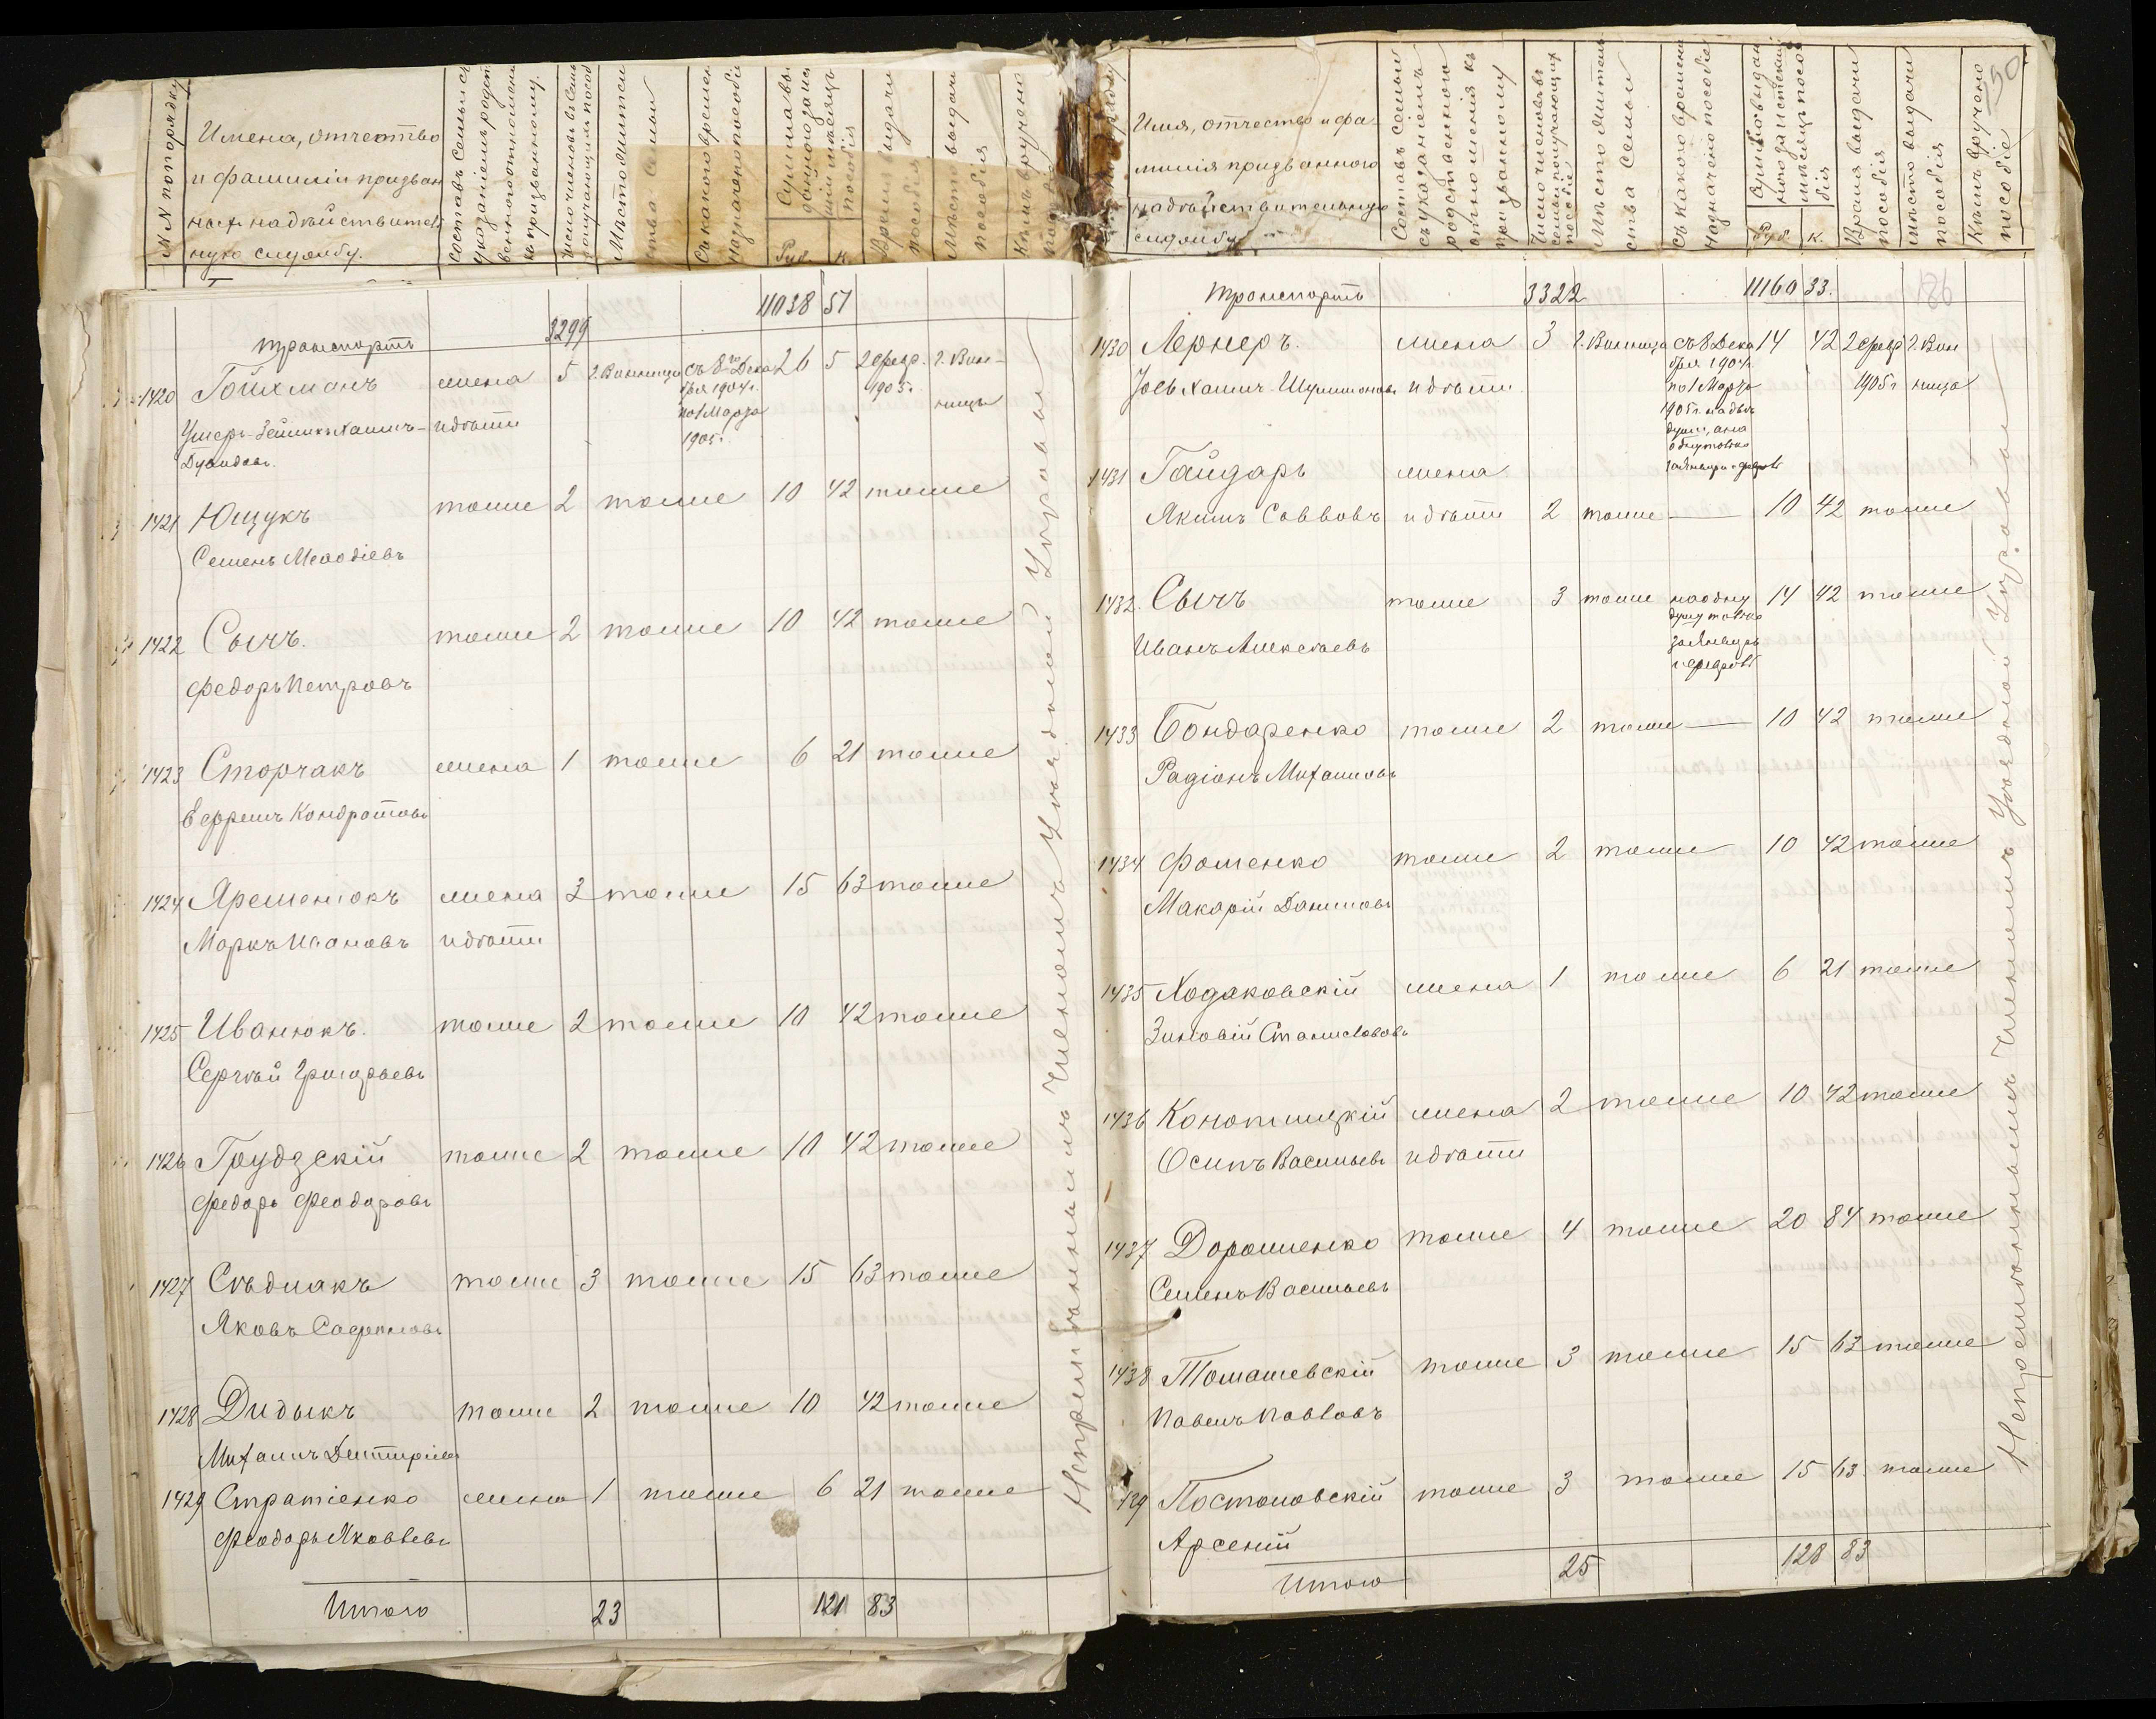 №№ по порядку
Имена, отчество
и фамиліи призван
ныхъ на дѣйствитель
ную службу.
Составъ семьи съ
указаніемъ родст
веннаго отношенія
къ призванному.
Число членовъ семьи
получающихъ пособ
Мѣстожительс
тва семьи
Съ какого времени
назначено пособіе
Руб. К.
Время выдачи
пособія
Мѣсто выдачи
пособія
Кѣмъ вручено
транспортъ 3299 11038 51
1420 Гойхманъ жена 5 г. Винница съ 8го Дека 26 5 2 февр. г. Вин-
бря 1904 г. 1905 г. ница
по 1 Марта
1905 г.
Ушеръ-Зейликъ Хаимъ- и дѣти
Дувидовъ.
1421 Ющукъ тоже 2 тоже 10 42 тоже
Семенъ Меѳодіевъ
1422 Сычъ. тоже 2 тоже 10 42 тоже
Федоръ Петровъ
1423 Сторчакъ жена 1 тоже 6 21 тоже
Ефремъ Кондратовъ
1424 Яременюкъ жена 3 тоже 15 63 тоже
Маркъ Ивановъ и дѣти
1425 Иванюкъ. тоже 2 тоже 10 42 тоже
Сергѣй Григорьевъ
1426 Грудзскій тоже 2 тоже 10 42 тоже
Федоръ Феодоровъ
1427 Сѣдлакъ тоже 3 тоже 15 63 тоже
Яковъ
1428 Дидыкъ тоже 2 тоже 10 42 тоже
Михаилъ Дмитріевъ
1429 Стратіенко жена 1 тоже 6 21 тоже
Феодоръ Яковлевъ
Итого 23 121 83
Непремѣннымъ Членомъ Уѣздной Управы
Имя, отчество и фа-
милія призваннаго
на дѣйствительную
службу
Составъ семьи
съ указаніемъ
родственнаго
отношенія къ
призванному
Число членовъ въ
семьи получающихъ
пособіе
Мѣсто житель
ства семьи
Съ какого времени
назначено пособіе
Руб. К.
Время выдачи
пособія
Мѣсто выдачи
пособія
Кѣмъ вручено
пособіе
150
186
транспортъ 3322 11160 33.
1430 Лернеръ. жена 3 г. Винница съ 8 Дека 14 42 2 февр г. Вин
бря 1904 г. 1905 г ница
по 1 Марта
1905 г. на двѣ
души, а на
одну только
за Январь и февраль
Іось Хаимъ Шулимоновъ и дѣти
1431 Гайдаръ жена
Якимъ Саввовъ и дѣти 2 тоже 10 42 тоже
1432. Сычъ тоже 3 тоже на одну 14 42 тоже
душу только
за Январь
и февраль
Иванъ Алексѣевъ
1433 Бондаренко тоже 2 тоже 10 42 тоже
Радіонъ Михаиловъ
1434 Фоменко тоже 2 тоже 10 42 тоже
Макарій Даниловъ
1435 Ходаковскій жена 1 тоже 6 21 тоже
Зиновій Станиславовъ
1436 Конопницкій жена 2 тоже 10 42 тоже
Осипъ Васильевъ и дѣти
1437 Дорошенко тоже 4 тоже 20 84 тоже
Семенъ Васильевъ
1438 Томашевскій тоже 3 тоже 15 63 тоже
Павелъ Павловъ
139 Постоловскій тоже 3 тоже 15 63 тоже
Арсеній
Итого 25 128 83
Непремѣннымъ Членомъ Уѣздной Управы